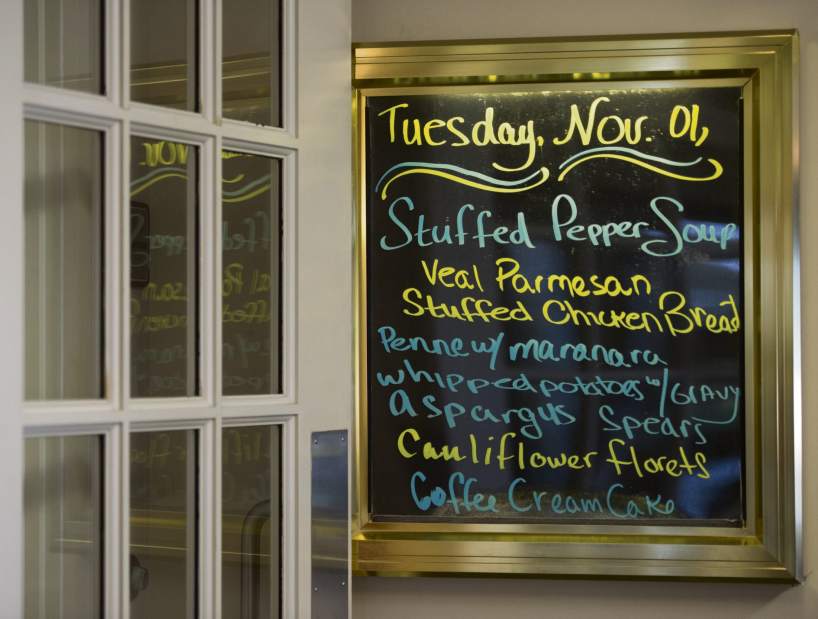 Tuesday, Nov. 01,
Stuffed Pepper Soup
Veal Parmesan
Stuffed Chicken Bread
Penne w/ maranara
whipped potatoes w/ GRAVY
aspargus Spears
Cauliflower florets
Coffee Cream Cake